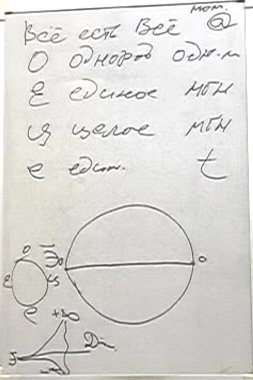 мом.
Всё есть Всё @
О однород одн-м
Е единое мгн
Ц целое мгн
е едст. t
О
О О
Е Ц
е
+∞